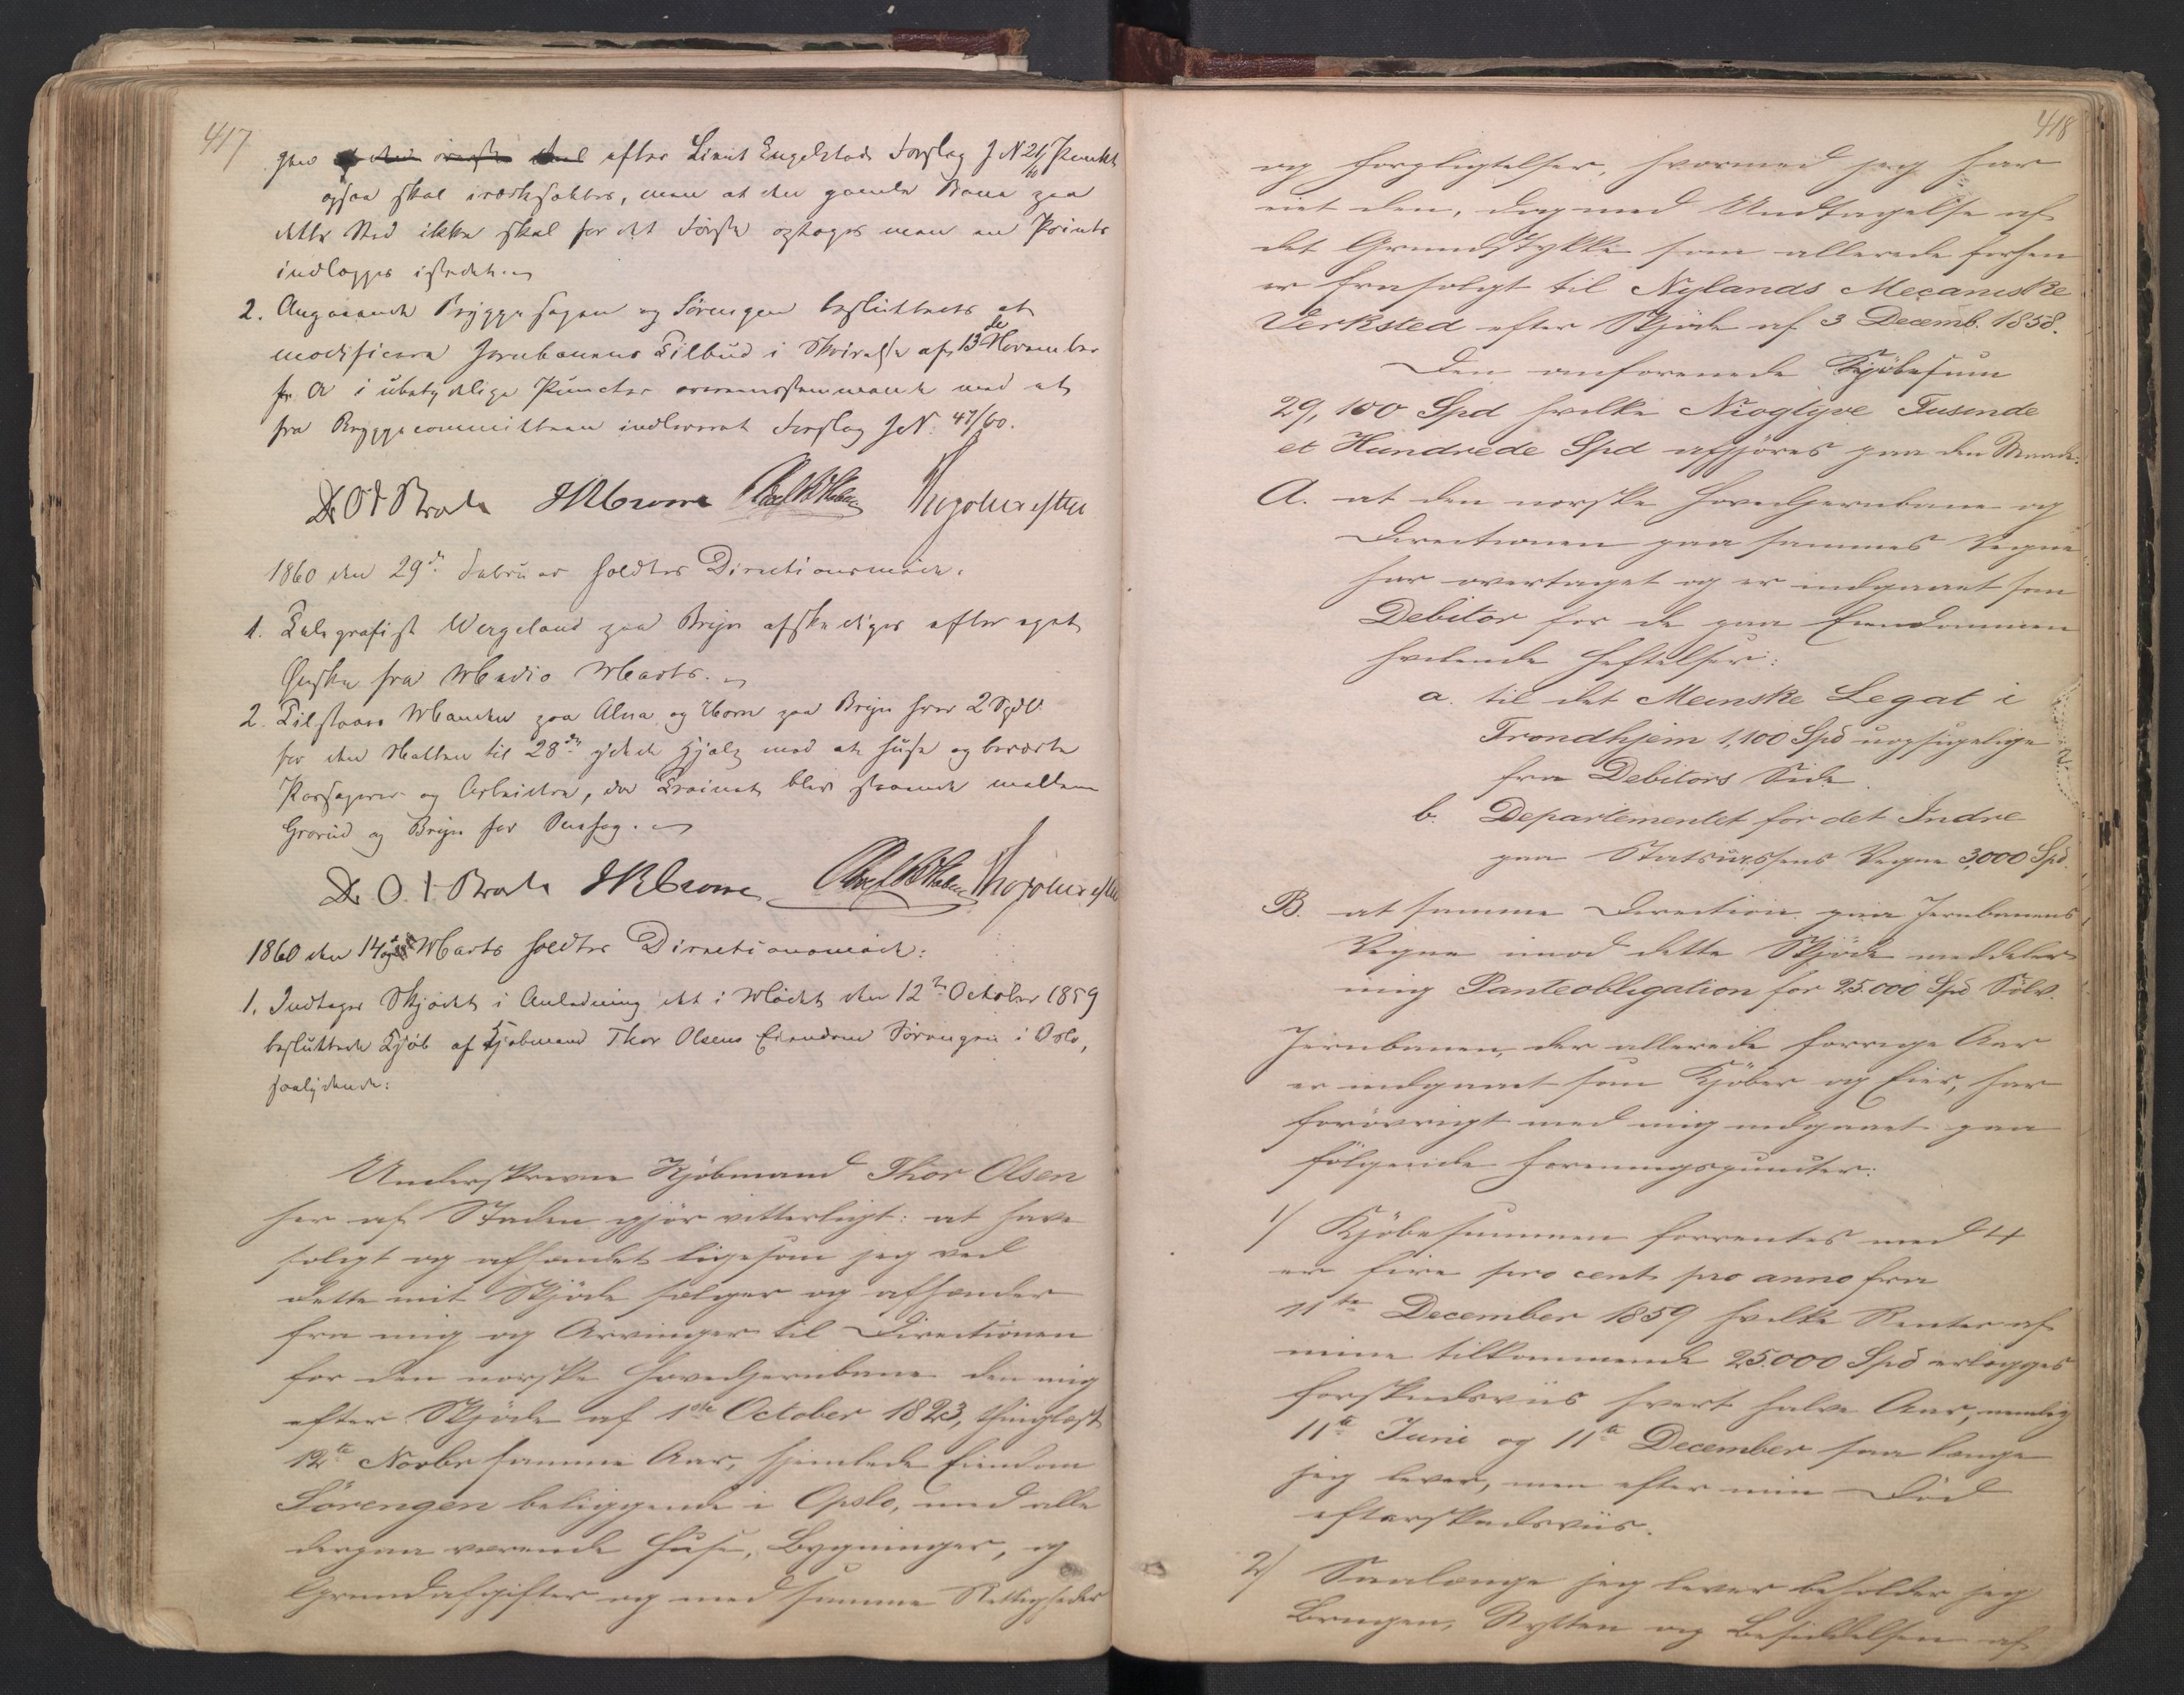 417
efter Lieut Engelstads Forslag J N 21/60 Punkt
ogsaa skal iværksættes, men at den gamle Bane paa
dette Sted ikke skal for det Første optages men en Points
indlægges istedet.
2. Angaaende Bryggesagen og Sørengen besluttedes at
modificere Jernbanens Tilbud i Skrivelse af 13de November
f. A. i ubetydelige Puncter overensstemmende med et
fra Bryggecommitteen indleveret Forslag J N. 47/60.
1860 den 29de Februar holdtes Directionsmøde.
1. Telegrafist Wergeland paa Bryn afskediges efter eget
Ønske fra Medio Marts.
2. Tilstaaes Manden paa Alna og Horn paa Bryn hver 2 Spd
for den Natten til 28de ydede Hjælp med at huse og beværte
Passagerer og Arbeidere, da Trainet blev staaende mellem
Grorud og Bryn for Snefog.
1860 den 14de Marts holdtes Directionsmøde:
1. Indtages Skjødet i Anledning det i Mødet den 12te October 1859
besluttede Kjøb af Kjøbmand Thor Olsens Eiendom Sørengen i Oslo,
saalydende:
Underskrevne Kjöbmand Thor Olsen
her af Staden gjör vitterligt: at have
solgt og afhændet ligesom jeg ved
dette mit Skjöde sælger og afhænder
fra mig og Arvinger til Directionen
for den norske Hovedjernbane den mig
efter Skjöde af 1ste October 1823, thinglæst
12te Novbr samme Aar, hjemlede Eiendom
Sörengen beliggende i Opslo, med alle
derpaa værende Huse, Bygninger, og
Grundafgifter og med samme Rettigheder
418
og Forpligtelser, hvormed jeg har
eiet den, dog med Undtagelse af
det Grundstykke som allerede forhen
er frasolgt til Nylands Mecaniske
Verksted efter Skjöde af 3 Decemb. 1858.
Den omforenede Kjöbesum
29,100 Spd hvilke Nioglyve Tusende
et Hundrede Spd afgjöres paa den Maade:
A. at den norske Hovedjernbane og
Directionen paa sammes Vegne
har overtaget og er indgaaet som
Debitor for de paa Eiendommen
hvilende Heftelser:
a. til det Meinske Legat i
Trondhjem 1,100 Spd uopsigelige
fra Debitors Side.
b. Departementet for det Indre
paa Statskassens Vegne 3,000 Spd.
B. at samme Direction paa Jernbanens
Vegne imod dette Skjöde meddeler
mig Panteobligation for 25.000 Spd Sölv.
Jernbanen, der allerede forrige Aar
er indgaaet som Kjöber og Eier, har
forövrigt med mig indgaaet paa
fölgende Foreningspuncter:
1/ Kjöbesummen forrentes med 4
er fire pro cent pro anno fra
11te December 1859 hvilke Renter af
mine tilkommende 25.000 Spd erlægges
forskudsviis hvert halve Aar, nemlig
11te Juni og 11te December saa længe
jeg lever, men efter min Död
efterskudsviis.
2/ Saalænge jeg lever beholder jeg
Brugen, Nytten og Besiddelsen af